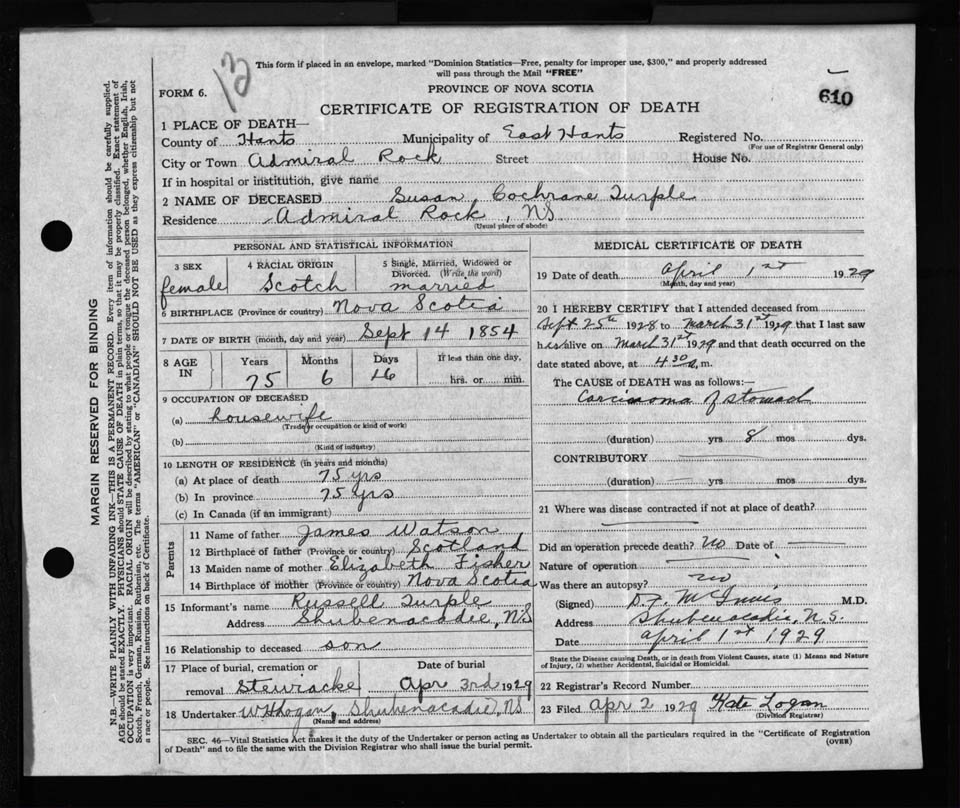 13
This form if placed in an envelope, marked "Dominion Statistics—Free, penalty for improper use, $300," and properly addressed
will pass through the Mail "FREE"
610
FORM 6.
PROVINCE OF NOVA SCOTIA
CERTIFICATE OF REGISTRATION OF DEATH
1 PLACE OF DEATH—
County of Hants Municipality of East Hants Registered No.
(For use of Registrar General only)
City or Town Admiral Rock Street House No.
If in hospital or institution, give name
2 NAME OF DECEASED Susan Cochrane Turple
Residence Admiral Rock, NS
(Usual place of abode)
PERSONAL AND STATISTICAL INFORMATION
3 SEX 4 RACIAL ORIGIN 5 Single, Married, Widowed or
Divorced. (Write the word)
female Scotch married
6 BIRTHPLACE (Province or country) Nova Scotia
7 DATE OF BIRTH (month, day and year) Sept 14 1854
8 AGE IN Years Months Days If less than one day,
75 6 16 hrs. or min.
9 OCCUPATION OF DECEASED
(a) housewife
(Trade or occupation or kind of work)
(b)
(Kind of industry)
10 LENGTH OF RESIDENCE (in years and months)
(a) At place of death 75 yrs
(b) In province 75 yrs
(c) In Canada (if an immigrant)
Parents
11 Name of father James Watson
12 Birthplace of father (Province or country) Scotland
13 Maiden name of mother Elizabeth Fisher
14 Birthplace of mother (Province or country) Nova Scotia
15 Informant's name Russell Turple
Address Shubenacadie, NS
16 Relationship to deceased son
17 Place of burial, cremation or Date of burial
removal Stewiacke Apr 3rd 1929
18 Undertaker W H Logan, Shubenacadie, NS
(Name and address)
MEDICAL CERTIFICATE OF DEATH
19 Date of death April 1st 1929
(Month, day and year)
20 I HEREBY CERTIFY that I attended deceased from
Sept. 25th 1928 to March 31st 1929 that I last saw
h is alive on March 31st 1929 and that death occurred on the
date stated above, at 4 30 a, m.
The CAUSE of DEATH was as follows:—
Carcinoma of stomach
(duration) yrs 8 mos dys.
CONTRIBUTORY
(duration) yrs mos dys.
21 Where was disease contracted if not at place of death?
Did an operation precede death? No Date of
Nature of operation
Was there an autopsy? No
(Signed) McInnis M.D.
Address Shubenacadie, N.S.
Date April 1st 1929
State the Disease causing Death, or in death from Violent Causes, state (1) Means and Nature
of Injury, (2) whether Accidental, Suicidal or Homicidal.
22 Registrar's Record Number
23 Filed Apr 2 1929 Kate Logan
(Division Registrar)
SEC. 46—Vital Statistics Act makes it the duty of the Undertaker or person acting as Undertaker to obtain all the particulars required in the "Certificate of Registration
of Death" and to file the same with the Division Registrar who shall issue the burial permit. (OVER)
MARGIN RESERVED FOR BINDING
N.B.—WRITE PLAINLY WITH UNFADING INK—THIS IS A PERMANENT RECORD. Every item of information should be carefully supplied.
AGE should be stated EXACTLY. PHYSICIANS should STATE CAUSE OF DEATH in plain terms, so that it may be properly classified. Exact statement of
OCCUPATION is very important. RACIAL ORIGIN will be described by stating to what people or tongue the deceased person belonged, whether English, Irish,
Scotch, French, German, Russian, Ruthenian, etc. The terms "AMERICAN" or "CANADIAN" SHOULD NOT BE USED as they express citizenship but not
a race or people. See instructions on back of Certificate.